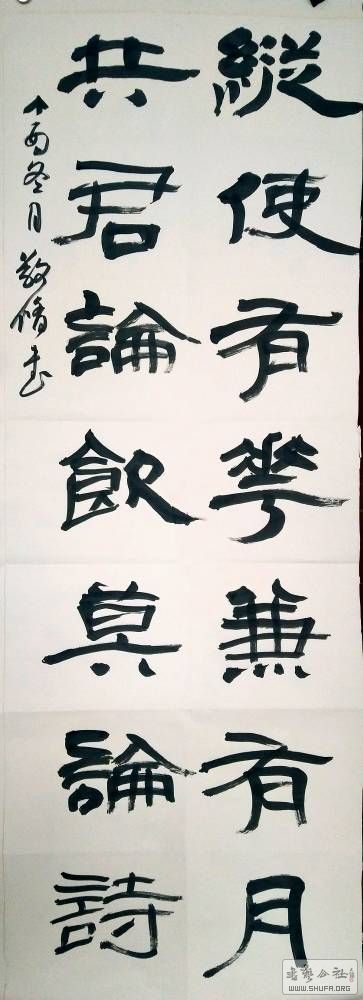 縱使有華兼有月
共君論飲莫論詩
丁酉冬月敬脩书
书艺公社
WWW.SHUFA.ORG